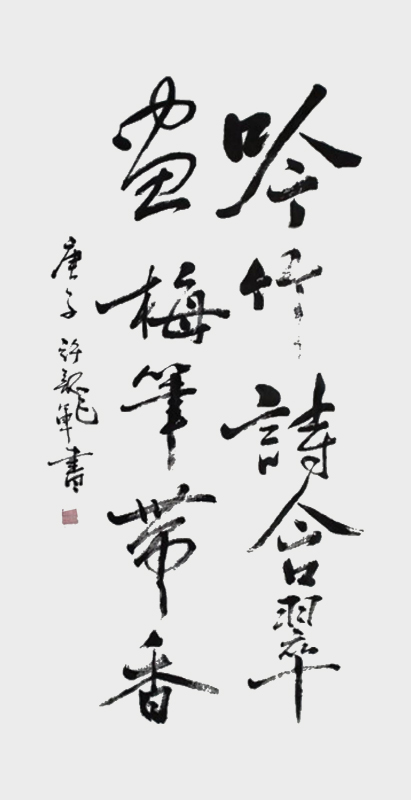 吟竹詩含翠
畫梅筆帶香
庚子 許龍軍書